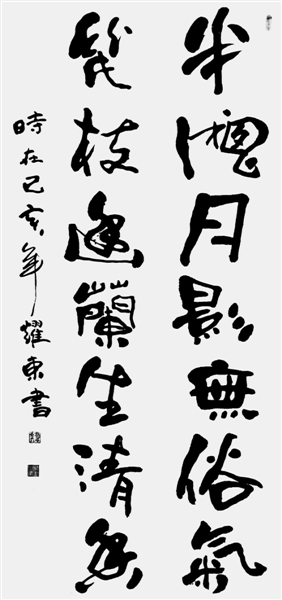 半月影無俗氣
幾枝蘭生清香
時在己亥年耀東書